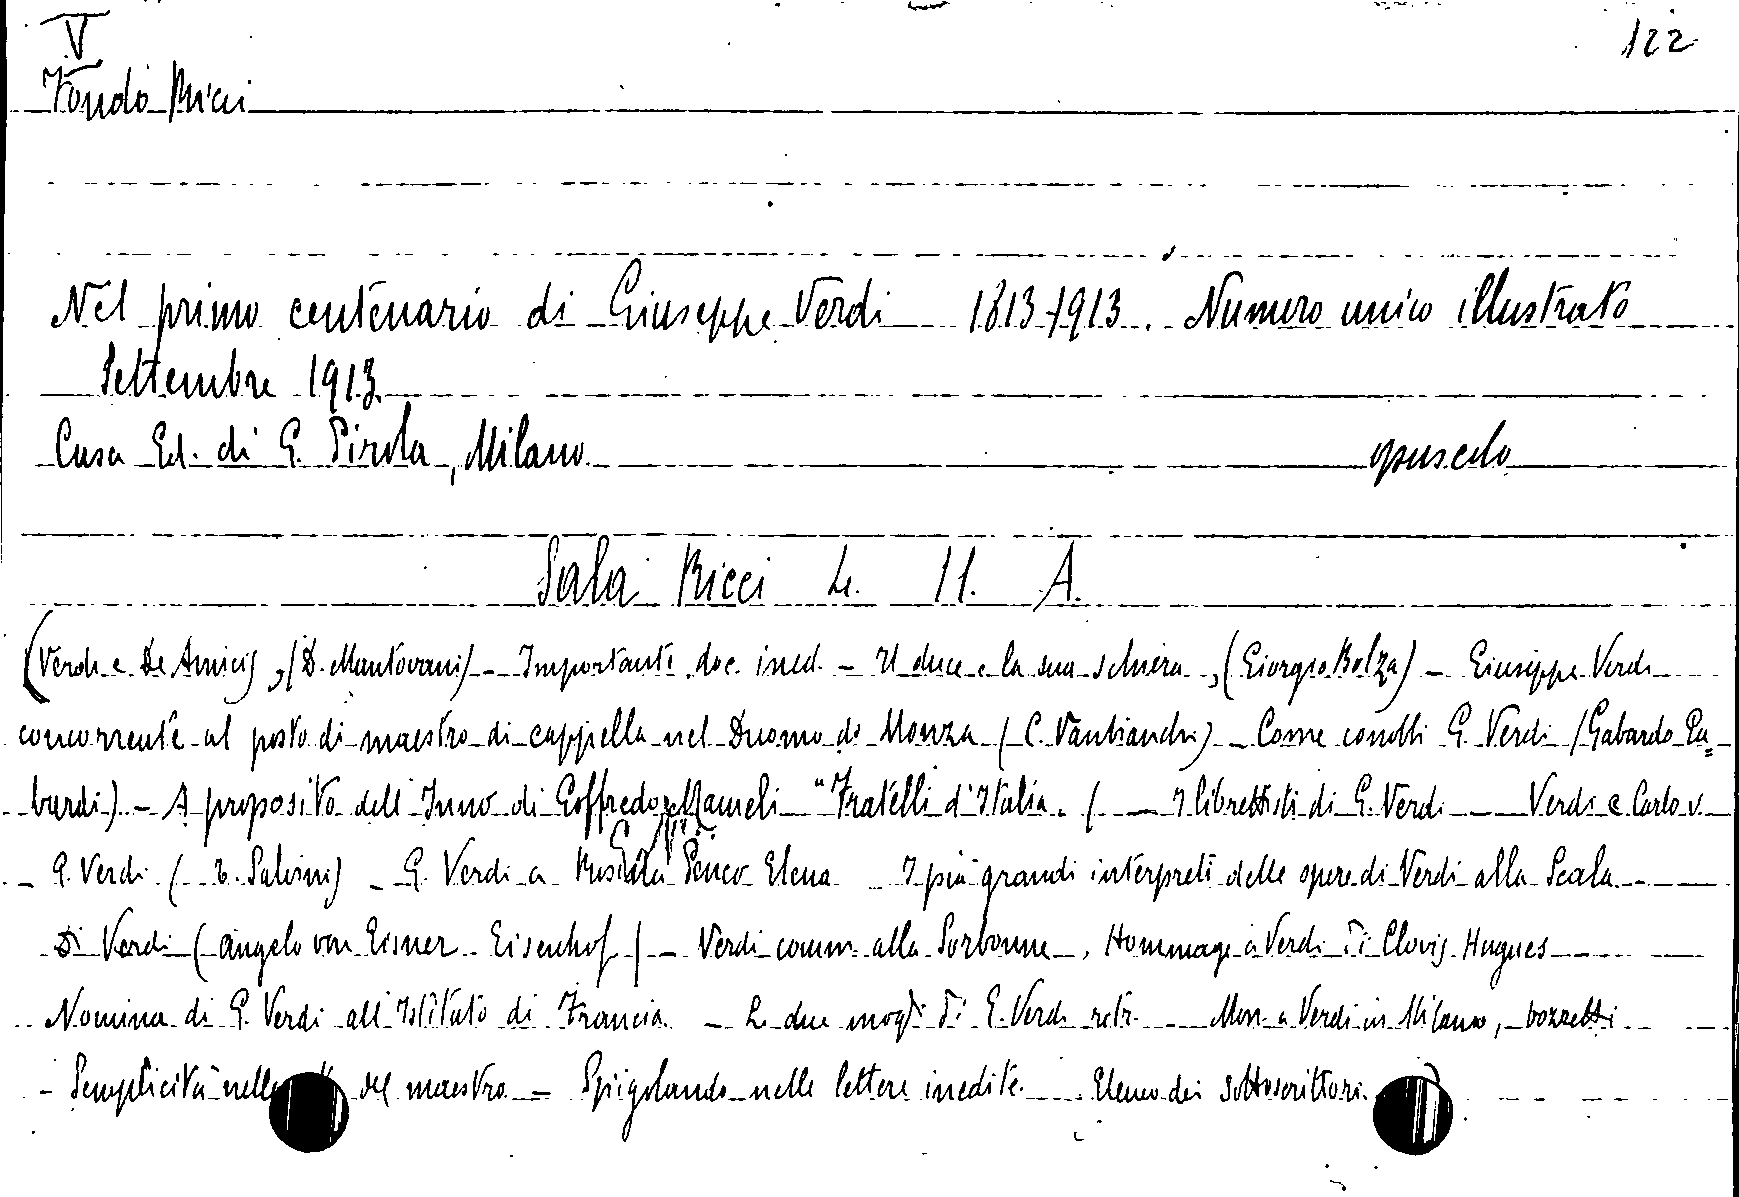 V
122
Fondo Ricci
Nel primo centenario di Giuseppe Verdi 1813-1913. Numero unico illustrato
Settembre 1913.
Casa Ed. di G. Pirola, Milano opuscolo
Sala Ricci L. 11. A.
(Verdi e De Amicis, (D. Mantovani) - Importanti doc. ined. - Il duce e la sua schiera, (Giorgio Bolza) - Giuseppe Verdi
concorrente al posto di maestro di cappella nel Duomo di Monza (C. Vanbianchi) - Come conobbi G. Verdi (Gabardo Ga=
bardi) - A proposito dell'Inno di Goffredo Mameli "Fratelli d'Italia. ( - I librettisti di G. Verdi - Verdi e Carlo V
- G. Verdi ( Salvini) - G. Verdi a Rosina Penco Elena I più grandi interpreti delle opere di Verdi alla Scala
Di Verdi (Angelo von Eisner Eisenhof) - Verdi comm. alla Sorbonne, Hommage a Verdi di Clovis Hugues
Nomina di G. Verdi all'Istituto di Francia - Le due mogli di G. Verdi ritr. Mon. a Verdi in Milano, bozzetti
- Semplicità nelle del maestro - Spigolando nelle lettere inedite. Elenco dei sottoscrittori.)